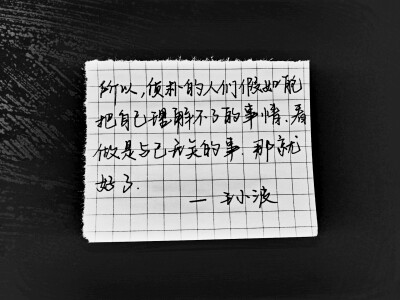 所以,质朴的人们假如能
把自己理解不了的事情,看
做是与己无关的事.那就
好了.
—王小波